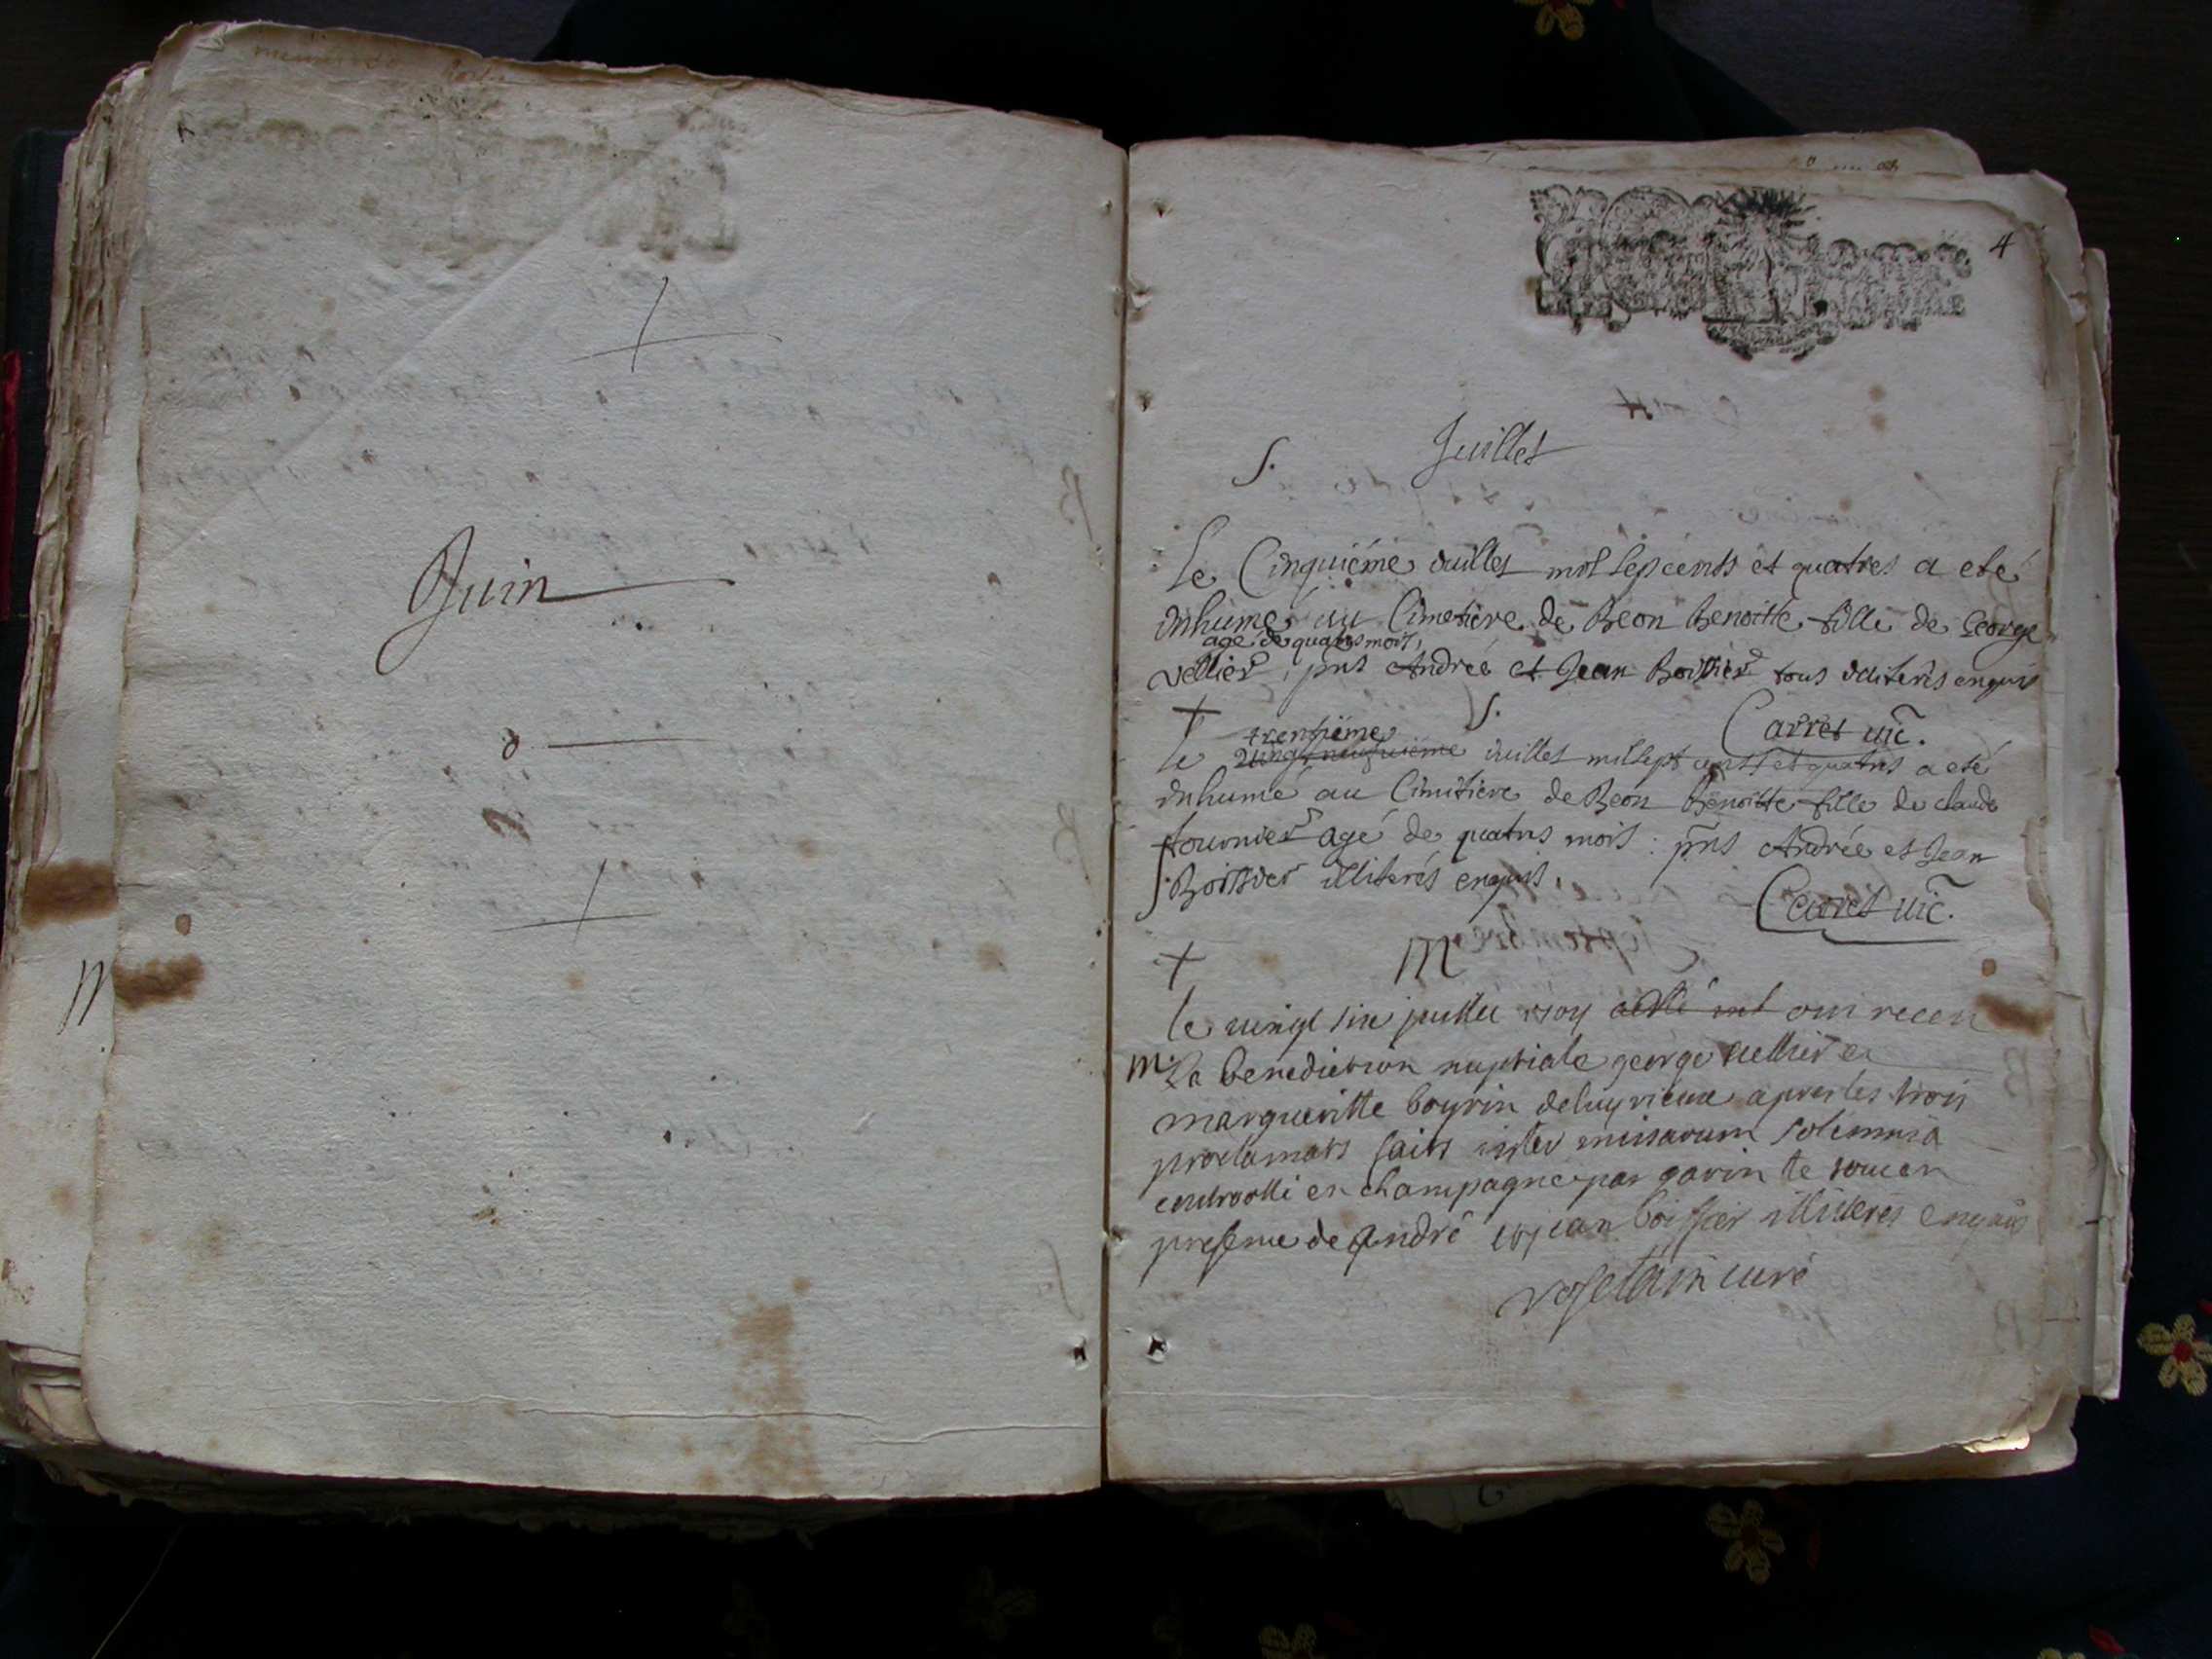 Juin
0
4
Juillet
S.
Le Cinquiéme juillet mil sepcents et quatres a eté
inhumé au Cimetiere de Beon Benoitte fille de George
agé de quatres mois,
vellier, pnts André et Jean Boissier tous illiterés enquis
S.
Carret vic.
trentiéme
Le vingt neufuiéme juillet mil sept cents et quatres a eté
inhumé au Cimitiere de Beon Benoitte fille de claude
fournier agé de quatres mois : pnts Andrée et Jean
S. Boissier illiterés enquis.
Carret vic.
M
le vingt six juillet 1704 ont receu
M. La benediction nuptiale george vellier et
margueritte boyrin de luyrieux apres les trois
proclamats faits inter missarum solemnia
controollé en champagne par gavin le tout en
presence de André et jean boissier illiterés enquis
curé
M